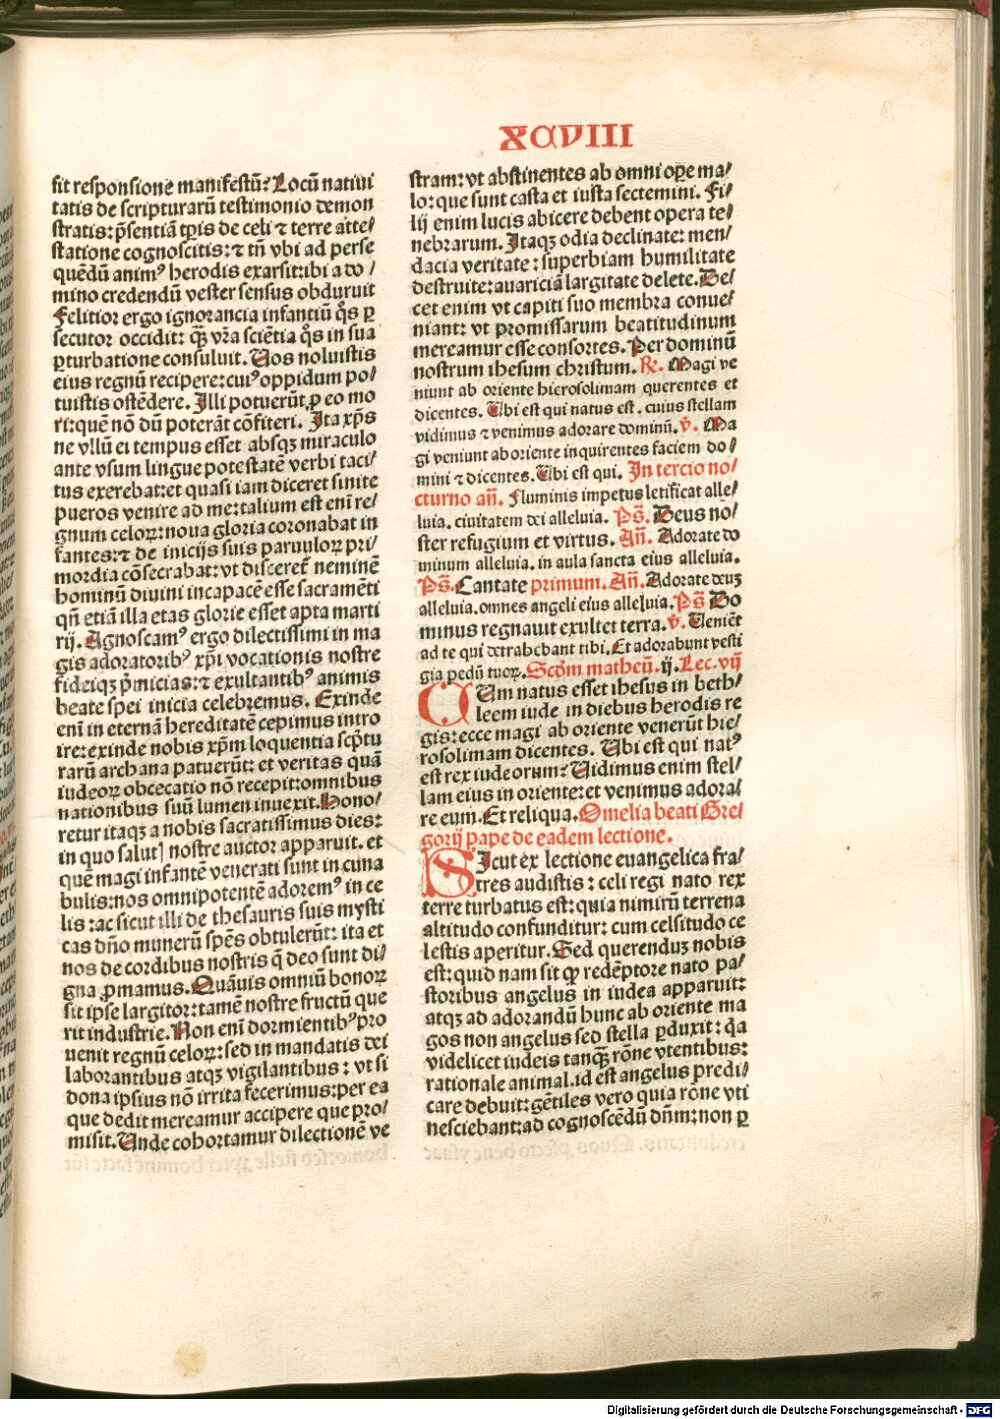 XCVIII
sit responsione manifestū? Locū natiui
tatis de scripturarū testimonio demon
stratis: p̄sentiā tꝑis de celi ⁊ terre atte/
statione cognoscitis: ⁊ tn̄ vbi ad perse
quēdū animꝰ herodis exarsit: ibi a do/
mino credendū vester sensus obduruit
Felitior ergo ignorancia infantiū q̄s ꝑ
secutor occidit: q̄ꝫ vr̄a sciētia q̄s in sua
ꝑturbatione consuluit. Uos noluistis
eius regnū recipere: cuiꝰ oppidum po/
tuistis ostēdere. Illi potuerūt ꝓ eo mo
ri: quē nō dū poterāt cōfiteri. Ita xp̄s
ne vllū ei tempus esset absqꝫ miraculo
ante vsum lingue potestatē verbi taci/
tus exerebat: et quasi iam diceret sinite
pueros venire ad me: talium est enī re/
gnum celoꝝ: noua gloria coronabat in
fantes: ⁊ de inicijs suis paruuloꝝ pri/
mordia cōsecrabat: vt disceret̄ neminē
hominū diuini incapacē esse sacramēti
qn̄ etiā illa etas glorie esset apta marti
rij. Agnoscamꝰ ergo dilectissimi in ma
gis adoratoribꝰ xp̄i vocationis nostre
fideiqꝫ p̄micias: ⁊ exultantibꝰ animis
beate spei inicia celebremus. Exinde
enī in eternā hereditatē cepimus intro
ire: exinde nobis xp̄m loquentia scp̄tu
rarū archana patuerūt: et veritas quā
iudeoꝝ obcecatio nō recepit: omnibus
nationibus suū lumen inuexit. Hono/
retur itaqꝫ a nobis sacratissimus dies:
in quo salutꝭ nostre auctor apparuit. et
quē magi infantē venerati sunt in cuna
bulis: nos omnipotentē adoremꝰ in ce
lis: ac sicut illi de thesauris suis mysti
cas dn̄o munerū spēs obtulerūt: ita et
nos de cordibus nostris q̄ deo sunt di/
gna ꝓmamus. Quāuis omniū bonoꝝ
sit ipse largitor: tamē nostre fructū que
rit industrie. Non enī dormientibꝰ pro
uenit regnū celoꝝ: sed in mandatis dei
laborantibus atqꝫ vigilantibus: vt si
dona ipsius nō irrita fecerimus: per ea
que dedit mereamur accipere que pro/
misit. Unde cohortamur dilectionē ve
stram: vt abstinentes ab omni oꝑe ma/
lo: que sunt casta et iusta sectemini. Fi/
lij enim lucis abicere debent opera te/
nebrarum. Itaqꝫ odia declinate: men/
dacia veritate: superbiam humilitate
destruite: auariciā largitate delete. De/
cet enim vt capiti suo membra conue/
niant: vt promissarum beatitudinum
mereamur esse consortes. Per dominū
nostrum ihesum christum. ℟. Magi ve
niunt ab oriente hierosolimam querentes et
dicentes. Ubi est qui natus est. cuius stellam
vidimus ⁊ venimus adorare dominū. v̄. Ma
gi veniunt ab oriente inquirentes faciem do/
mini ⁊ dicentes. Ubi est qui. In tercio no/
cturno an̄. Fluminis impetus letificat alle/
luia. ciuitatem dei alleluia. Ps̄. Deus no/
ster refugium et virtus. An̄. Adorate do
minum alleluia. in aula sancta eius alleluia.
Ps̄. Cantate primum. An̄. Adorate deuꝫ
alleluia. omnes angeli eius alleluia. Ps̄ Do
minus regnauit exultet terra. v̄. Ueniēt
ad te qui detrahebant tibi. Et adorabunt vesti
gia pedū tuoꝝ. Scd̄m matheū. ij. Lec. vij
CUm natus esset ihesus in beth/
leem iude in diebus herodis re
gis: ecce magi ab oriente venerūt hie/
rosolimam dicentes. Ubi est qui natꝰ
est rex iudeorum? Uidimus enim stel/
lam eius in oriente: et venimus adora/
re eum. Et reliqua. Omelia beati Gre/
gorij pape de eadem lectione.
SIcut ex lectione euangelica fra/
tres audistis: celi regi nato rex
terre turbatus est: quia nimirū terrena
altitudo confunditur: cum celsitudo ce
lestis aperitur. Sed querenduꝫ nobis
est: quid nam sit ꝙ redēptore nato pa/
storibus angelus in iudea apparuit:
atqꝫ ad adorandū hunc ab oriente ma
gos non angelus sed stella ꝑduxit: q̄a
videlicet iudeis tanq̄ꝫ rōne vtentibus:
rationale animal. id est angelus p̄edi/
care debuit: gētiles vero quia rōne vti
nesciebant: ad cognoscēdū dn̄m: non ꝑ
Digitalisierung gefördert durch die Deutsche Forschungsgemeinschaft - DFG